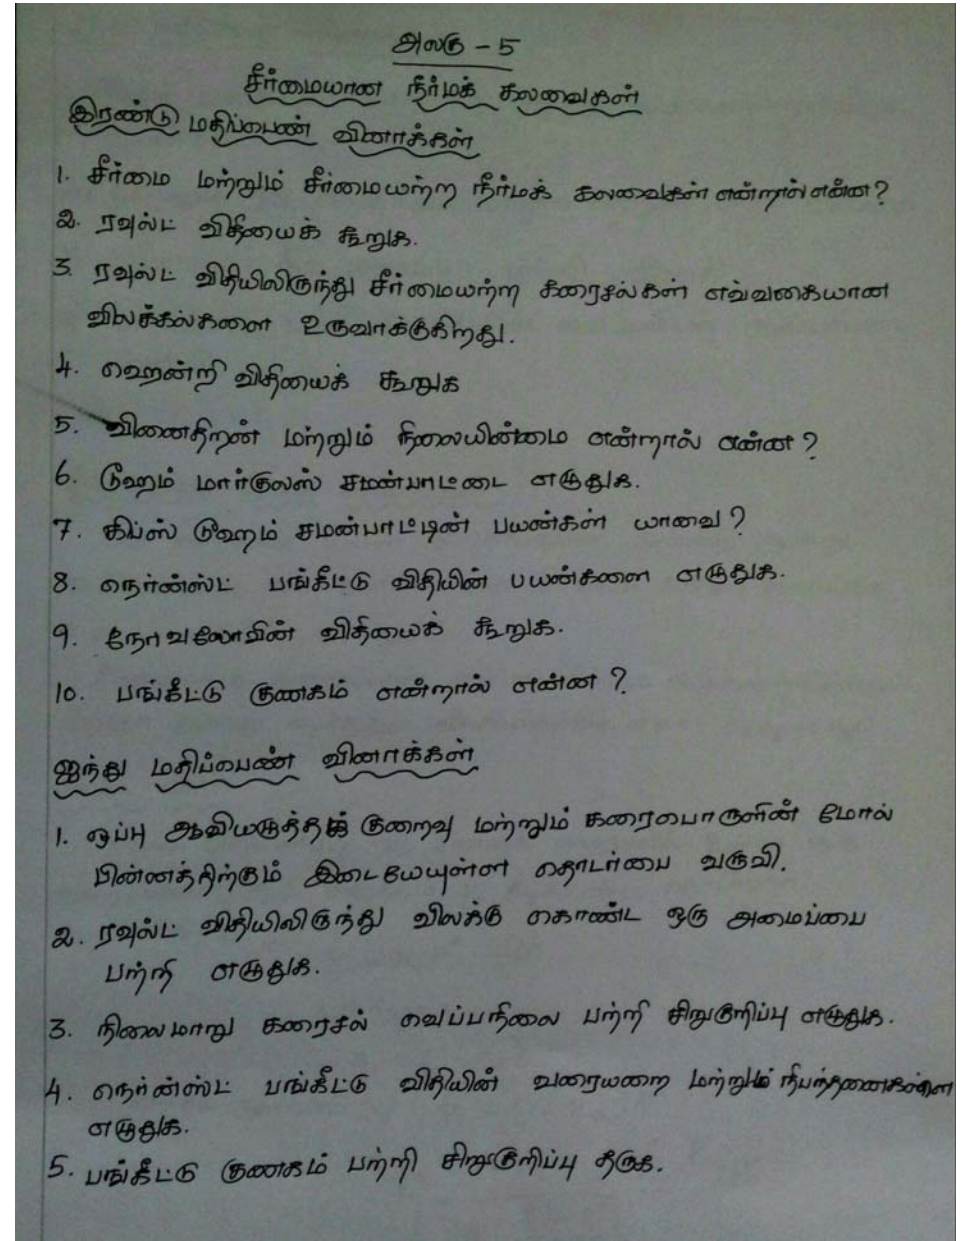 அலகு - 5
சீர்மையான நீர்மக் கலவைகள்
இரண்டு மதிப்பெண் வினாக்கள்
1. சீர்மை மற்றும் சீர்மையற்ற நீர்மக் கலவைகள் என்றால் என்ன?
2. ரவுல்ட் விதியைக் கூறுக.
3. ரவுல்ட் விதியிலிருந்து சீர்மையற்ற கரைசல்கள் எவ்வகையான
விலக்கல்களை உருவாக்குகிறது.
4. ஹென்றி விதியைக் கூறுக
5. வினைதிறன் மற்றும் நிலையின்மை என்றால் என்ன?
6. டூஹம் மார்குலஸ் சமன்பாட்டை எழுதுக.
7. கிப்ஸ் டூஹம் சமன்பாட்டின் பயன்கள் யாவை?
8. நெர்ன்ஸ்ட் பங்கீட்டு விதியின் பயன்களை எழுதுக.
9. விதியைக் கூறுக.
10. பங்கீட்டு குணகம் என்றால் என்ன?
ஐந்து மதிப்பெண் வினாக்கள்
1. ஒப்பு ஆவியழுத்தக் குறைவு மற்றும் கரைபொருளின் மோல்
பின்னத்திற்கும் இடையேயுள்ள தொடர்பை வருவி.
2. ரவுல்ட் விதியிலிருந்து விலக்கு கொண்ட ஒரு அமைப்பை
பற்றி எழுதுக.
3. நிலைமாறு கரைசல் வெப்பநிலை பற்றி சிறுகுறிப்பு எழுதுக.
4. நெர்ன்ஸ்ட் பங்கீட்டு விதியின் வரையறை மற்றும் நிபந்தனைகளை
எழுதுக.
5. பங்கீட்டு குணகம் பற்றி சிறுகுறிப்பு தருக.